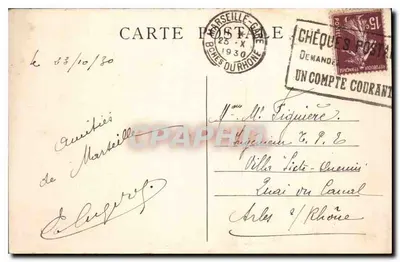 CARTE POSTALE
MARSEILLE-GARE
23 - X
1930
BCHES DU RHONE
CHÈQUES POSTA
DEMANDE
UN COMPTE COURANT
15c
le 23/10/30
Amitiés
de Marseille
Mme M. Figuière
Ingénieur T.P.E
Villa
Quai du Canal
Arles s/Rhône